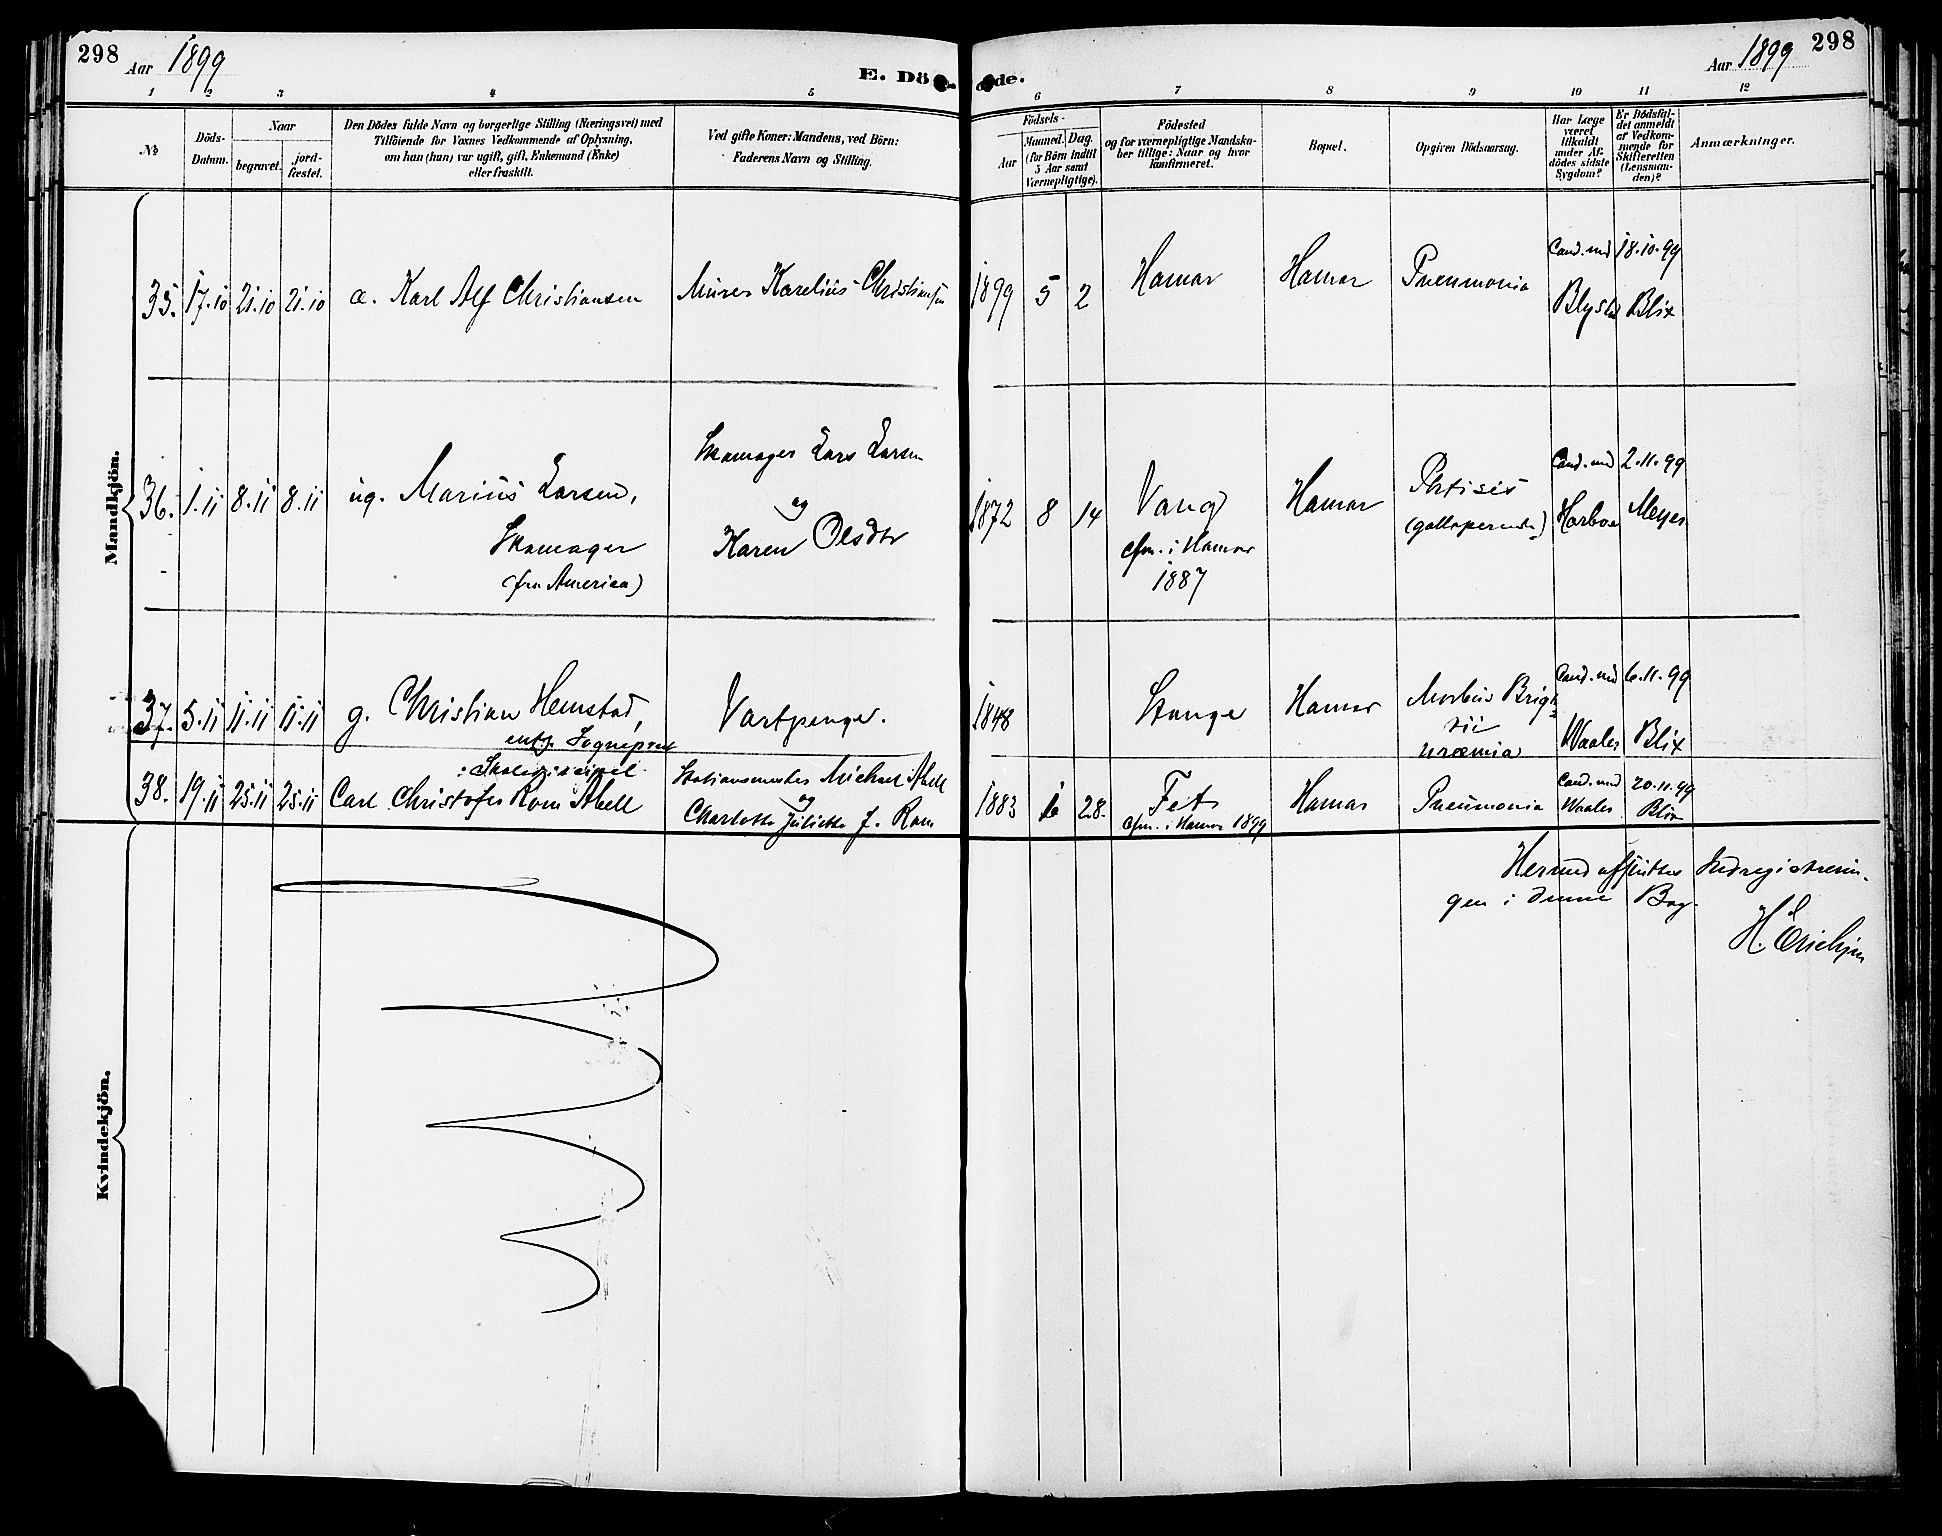 298
Aar 1899
E. Dö
de.
Aar 1899
298
1 2 3 4 5 6 7 8 9 10 11 12
No
Döds-
Datum.
Naar
begravet.
jord-
fæstet.
Den Dödes fulde Navn og borgerlige Stilling (Næringsvei) med
Tilföiende for Voxnes Vedkommende af Oplysning,
om han (hun) var ugift, gift, Enkemand (Enke)
eller fraskilt.
Ved gifte Koner: Mandens, ved Börn:
Faderens Navn og Stilling.
Födsels-
Aar
Maaned. Dag.
(for Börn indtil
5 Aar samt
Værnepligtige).
Födested
og for værnepligtige Mandska-
ber tillige: Naar og hvor
konfirmeret.
Bopæl.
Opgiven Dödsaarsag.
Har Læge
været
tilkaldt
under Af-
dödes sidste
Sygdom?
Er Dödsfal-
det anmeldt
af Vedkom-
mende for
Skifteretten
(Lensman-
den)?
Anmærkninger.
Mandkjön.
35. 17.10 21.10 21.10 a. Karl Alf Christiansen
Murer Karelius Christiansen
1899 5 2 Hamar Hamar Pneumonia
Cand. med
18.10.99
Blix
36. 1.11 8.11 8.11 ug. Marius Larsen,
Skomager
(fra America)
Skomager Lars Larsen
og
Karen Olsdtr
1872 8 14 Vang
Cfm. i Hamar
1887
Hamar
Phtisis
Cand. med
Harboe
2.11.99
Meyer
37. 5.11 11.11 11.11 g. Christian Hemstad,
Vartpenger.
1848 Stange Hamar Morbus Brigh-
tii
uræmia
Cand. med
Waaler
6.11.99
Blix
38. 19.11 25.11 25.11
Skolediscipel
Carl Christofer Rom Abell
Stationsmester Michael Abell
og
Charlotte Juliette f. Rom
1883 1 28. Fet
Cfm. i Hamar 1899
Hamar Pneumonia
Cand. med
Waaler
20.11.99
Blix
Kvindekjön.
Hermed afsluttes Indregistrerin-
gen i denne Bog.